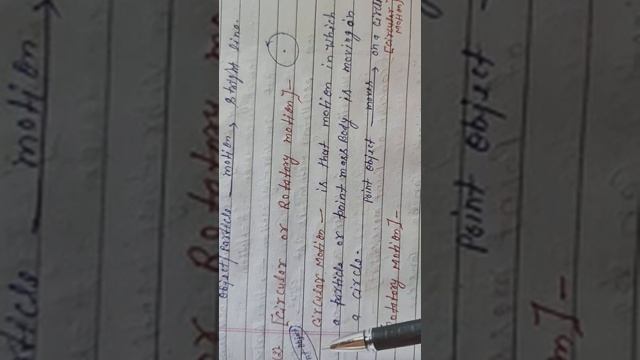 object/particle motion → straight line.
(2) [Circular or Rotatory motion] -
Circular Motion - is that motion in which
a particle or point mass body is moving on
a circle.
Point object moves → on a circle
[Circular motion]
Rotatory motion] -